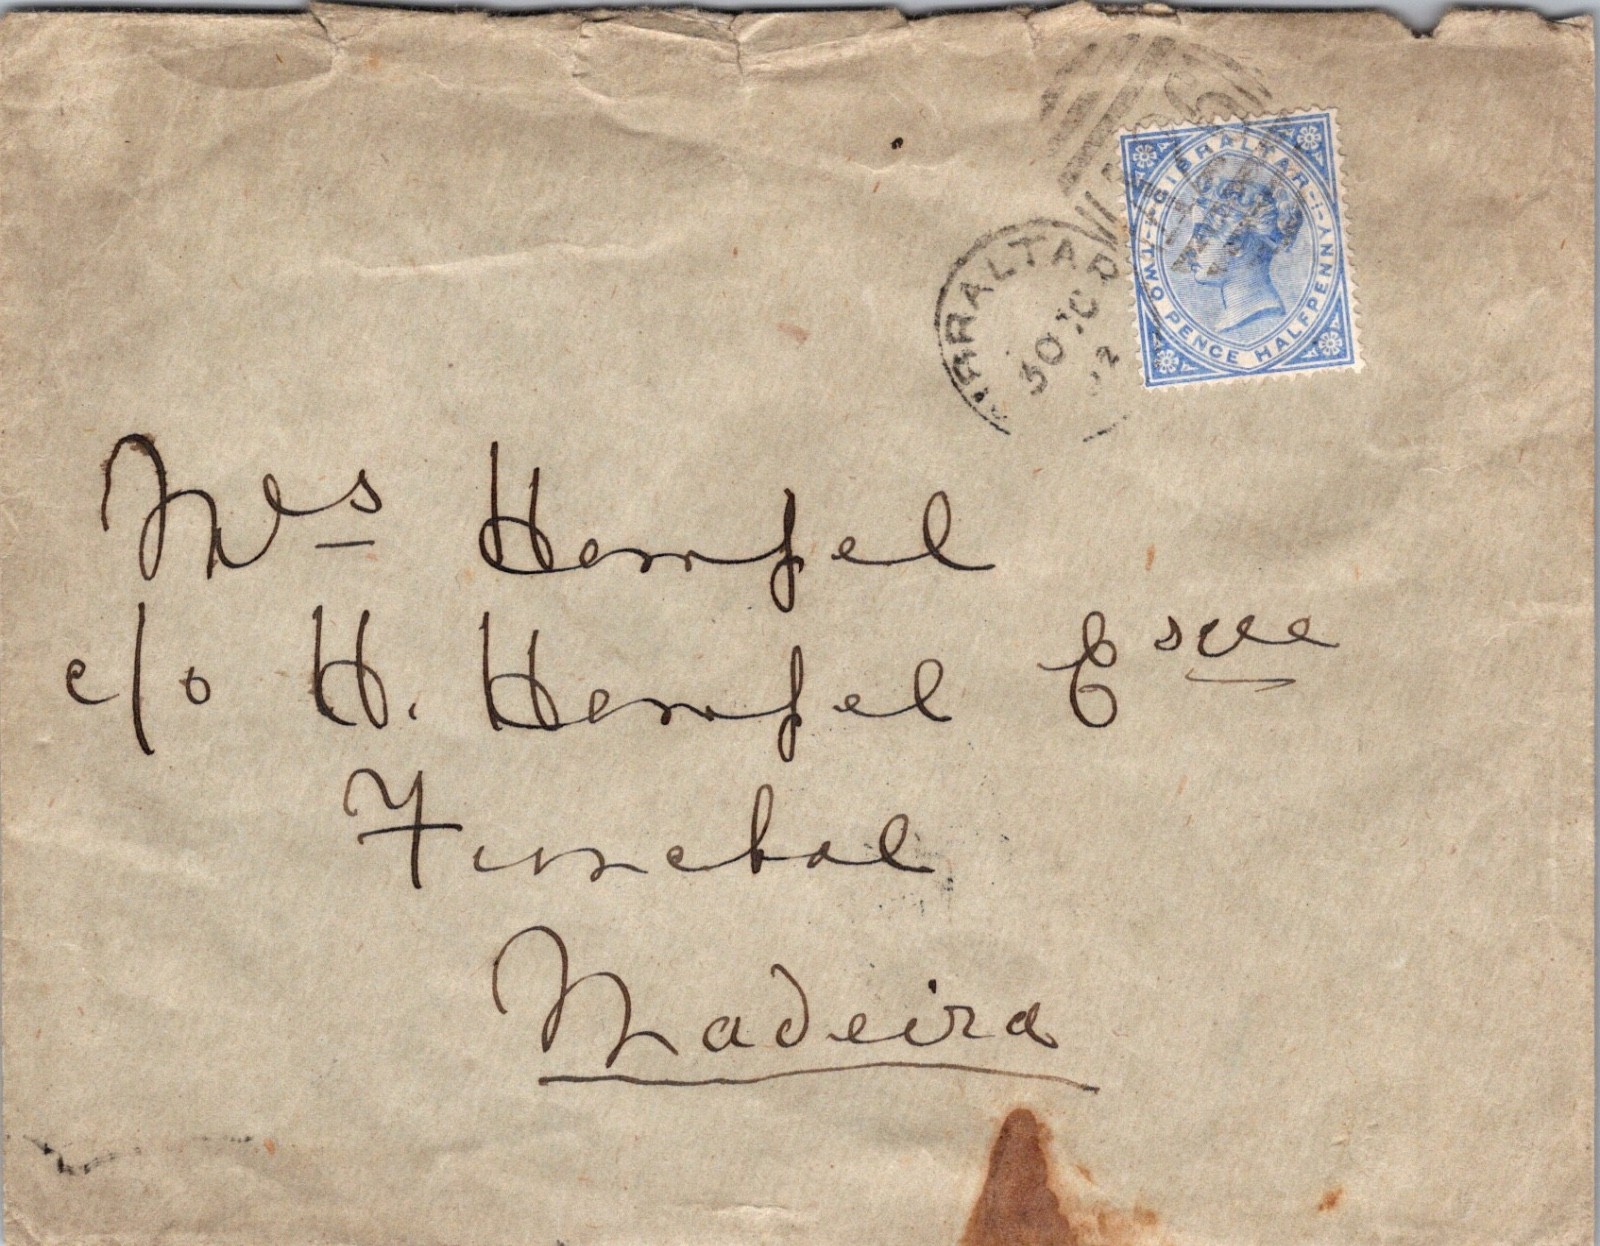 GIBRALTAR
TWO PENCE HALFPENNY
GIBRALTAR
30 OC
Mrs Hempel
c/o H. Hempel Esqre
Funchal
Madeira